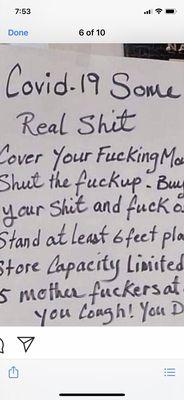 7:53
Done
6 of 10
Covid-19 Some
Real Shit
Cover Your Fucking
Shut the fuckup - Buy
your Shit and fuck
Stand at least 6 feet
Store Capacity Limited
5 mother fuckers at
you Cough! You